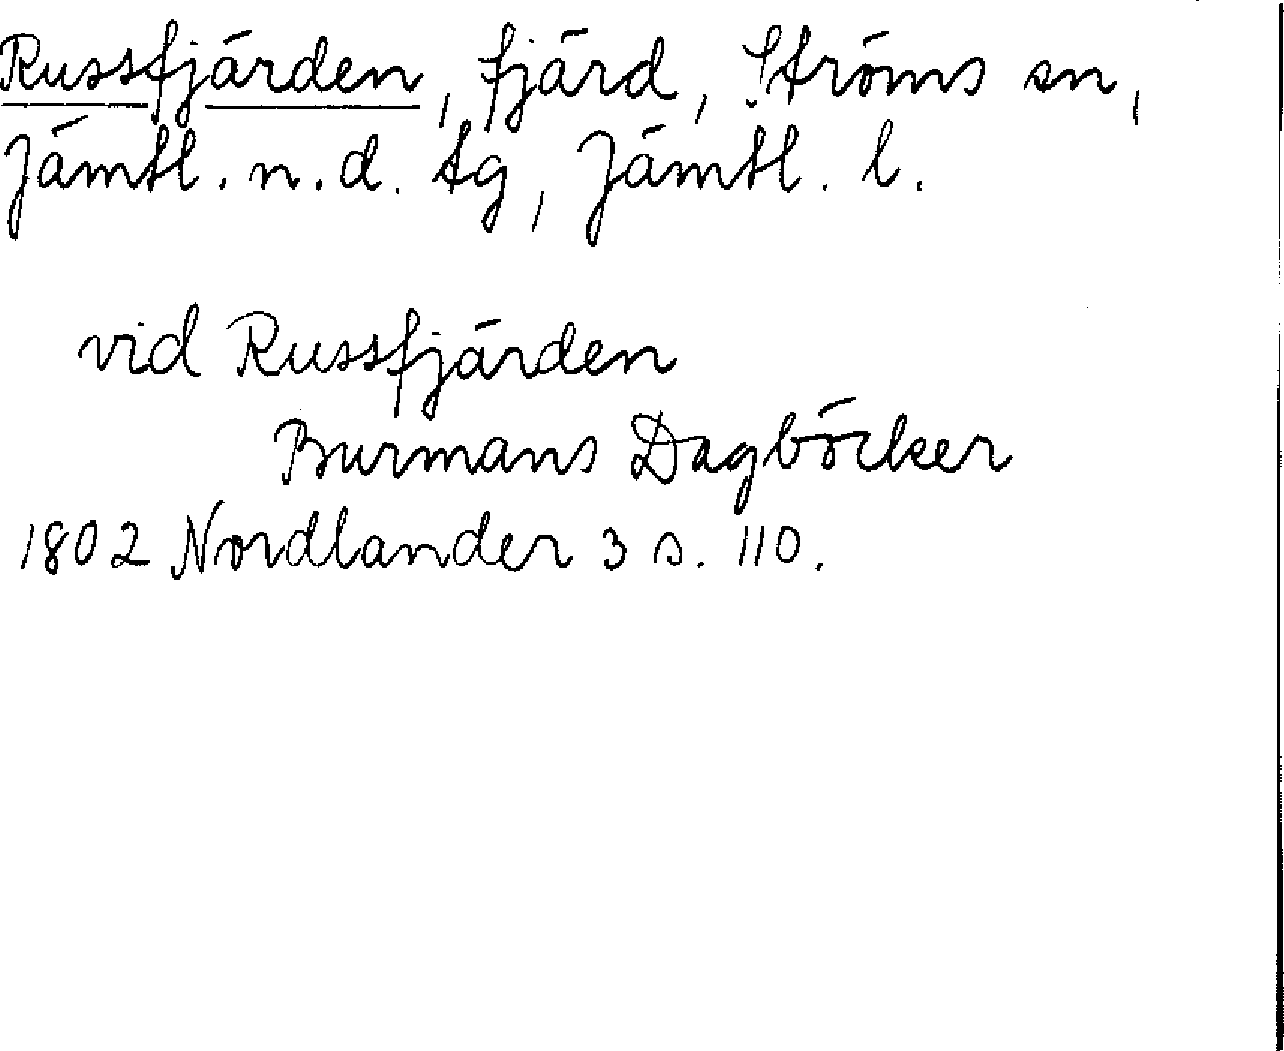 Russfjärden, fjärd, Ströms sn,
Jämtl. n. d. tg, Jämtl. l.
vid Russfjärden
Burmans Dagböcker
1802 Nordlander 3 s. 110.